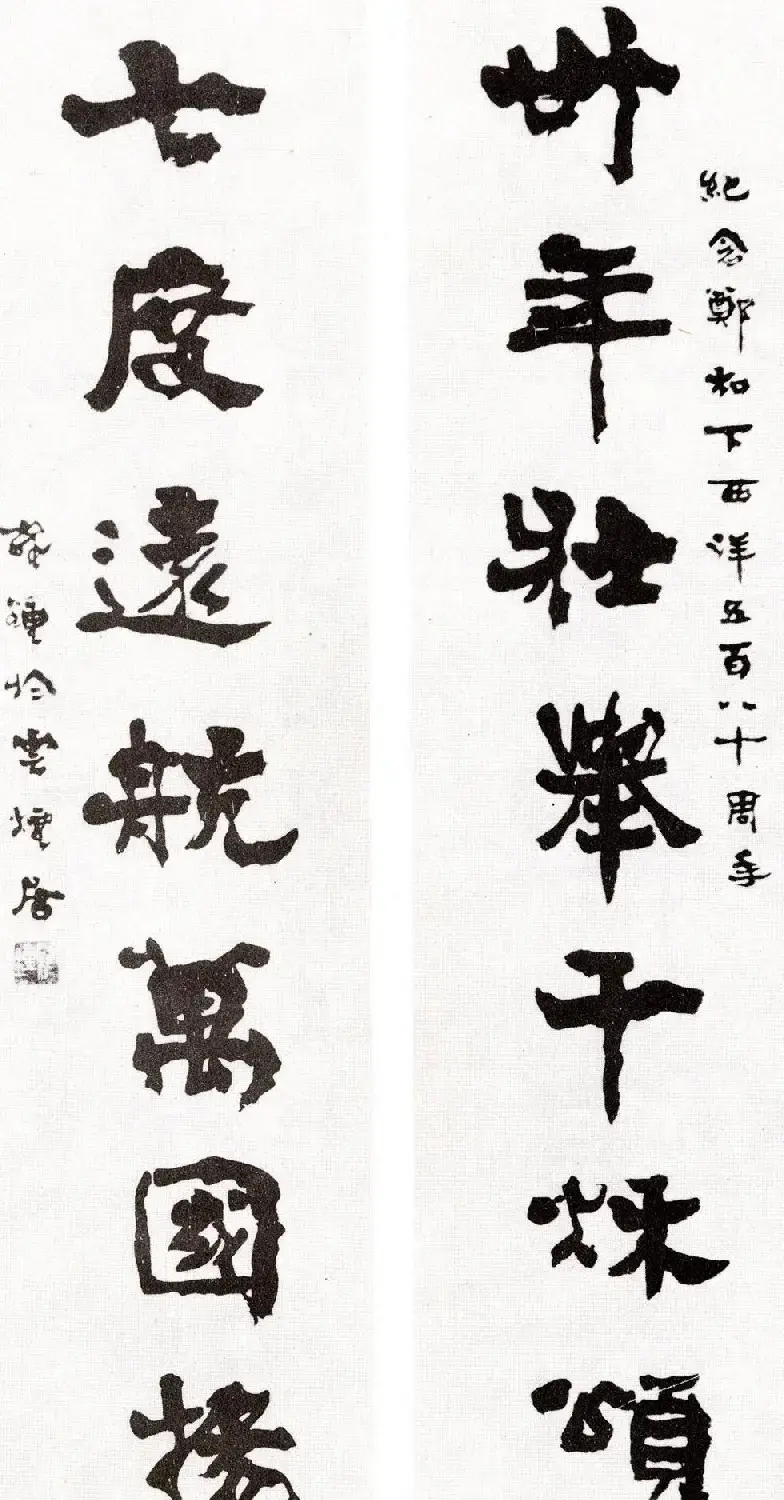 紀念鄭和下西洋五百八十周年
卅年壯舉千秌頌
七度遠航萬國揚
鍾於雲煙居